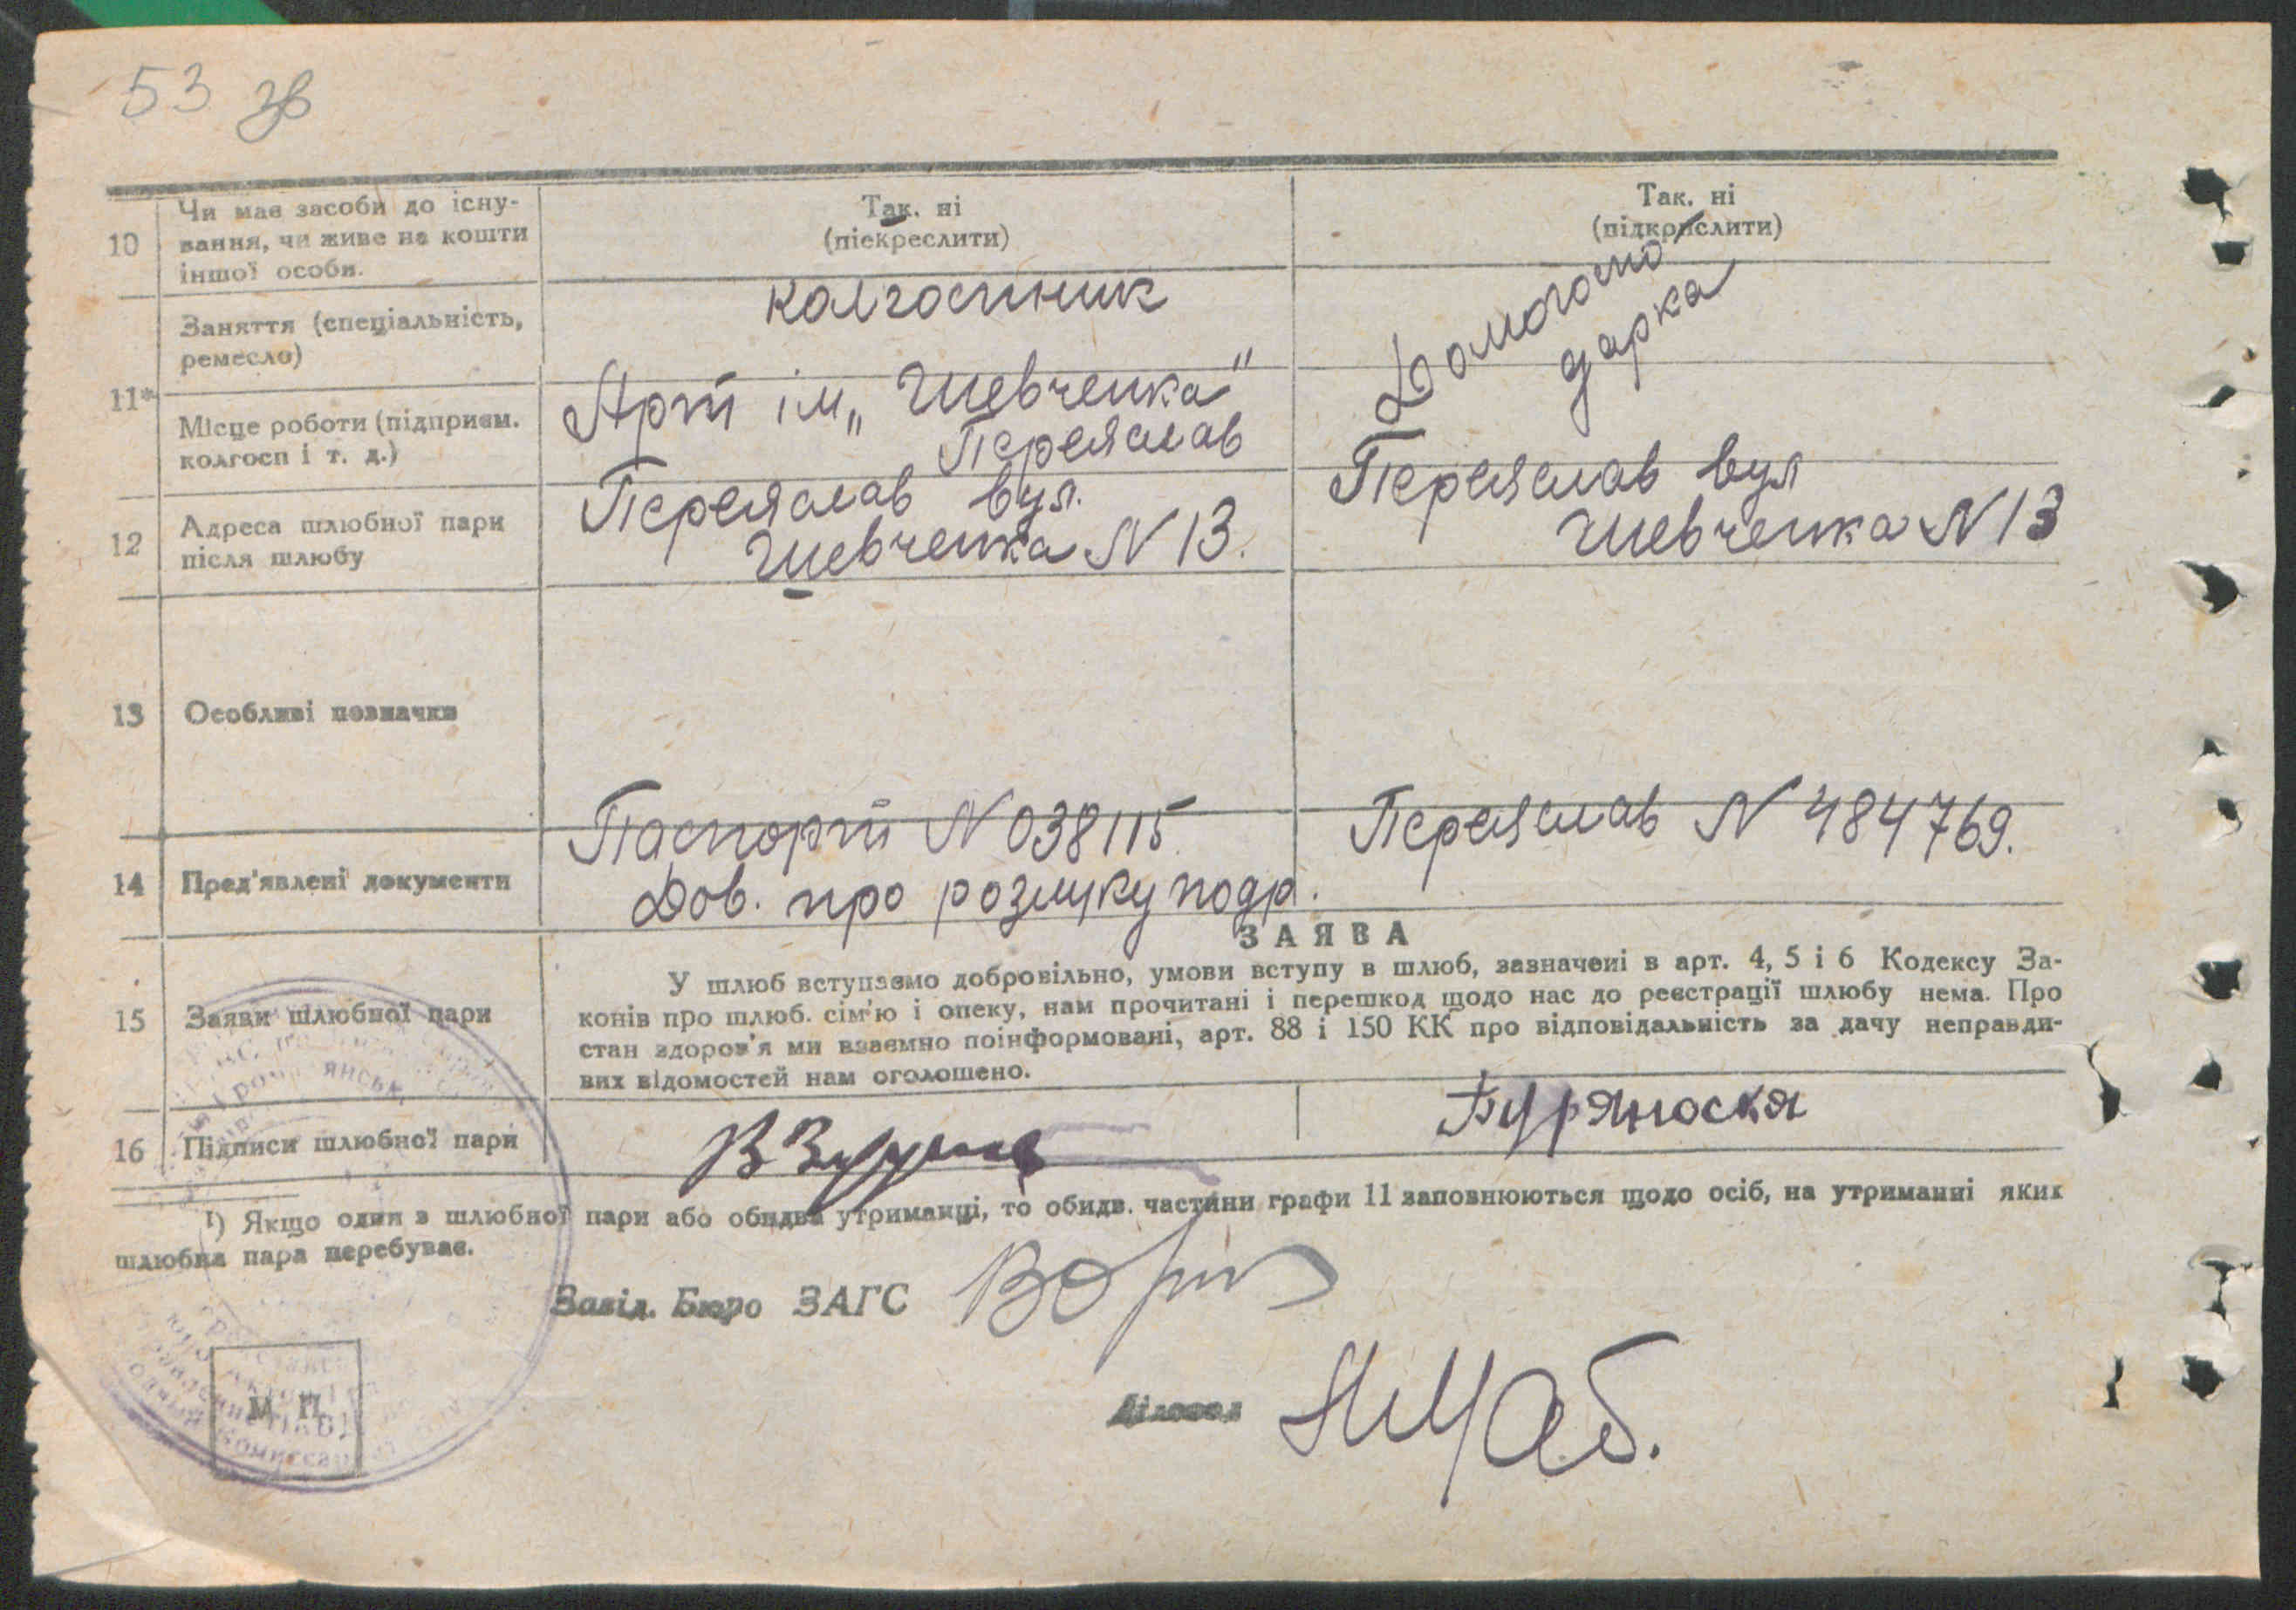 53 зв
10 Чи має засоби до існу-
вання, чи живе на кошти
іншої особи.
Так. ні
(піекреслити)
Так. ні
(підкрислити)
11*
Заняття (спеціальність,
ремесло)
колгоспник
Домогоспо
дарка
Місце роботи (підприєм.
колгосп і т. д.)
Арт ім „Шевченка"
Переяслав
12 Адреса шлюбної пари
після шлюбу
Переяслав вул.
Шевченка N 13.
Переяслав вул
Шевченка N 13
13 Особливі позначки
14 Пред'явлені документи
Паспорт N 038115
Дов. про розлуку подр.
Переяслав N 484769.
15 Заяви шлюбної пари
ЗАЯВА
У шлюб вступаємо добровільно, умови вступу в шлюб, зазначені в арт. 4, 5 і 6 Кодексу За-
конів про шлюб. сім'ю і опеку, нам прочитані і перешкод щодо нас до реєстрації шлюбу нема. Про
стан здоров'я ми взаємно поінформовані, арт. 88 і 150 КК про відповідальність за дачу неправди-
вих відомостей нам оголошено.
16 Підписи шлюбної пари
¹) Якщо один з шлюбної пари або обидва утриманці, то обидв. частини графи 11 заповнюються щодо осіб, на утриманні яких
шлюбна пара перебуває.
Завід. Бюро ЗАГС
Діловод
М. П.